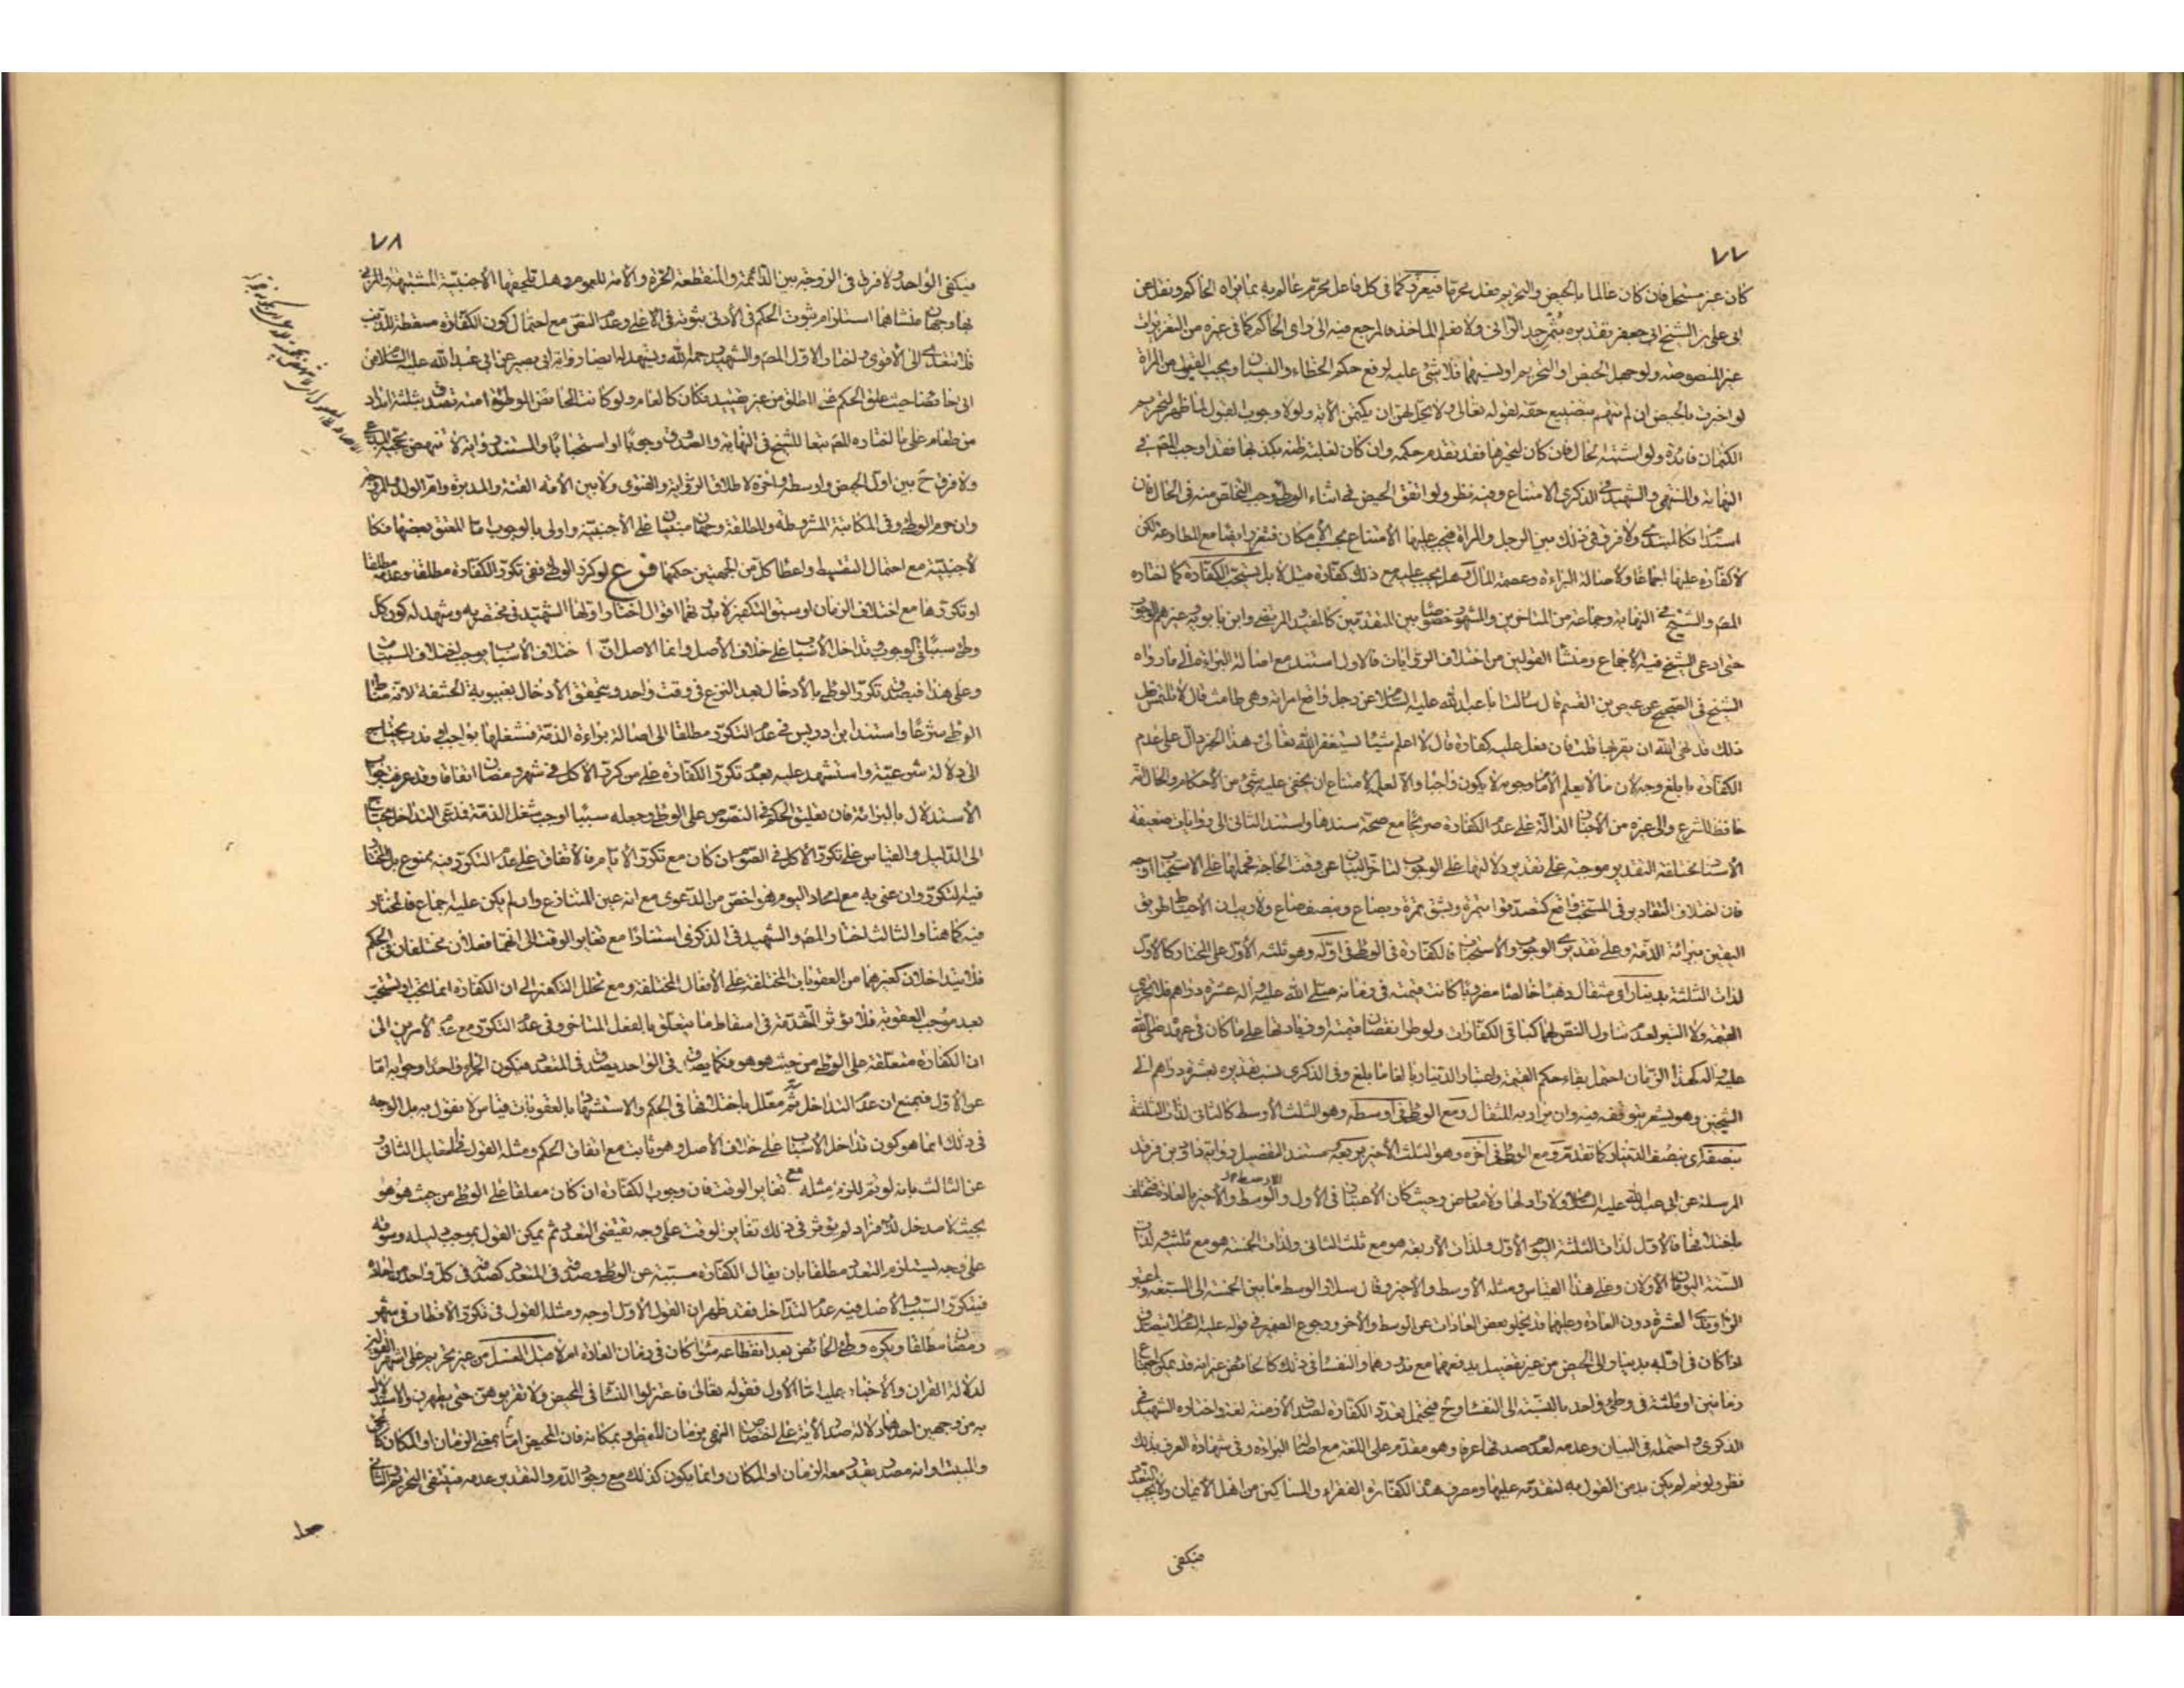 ٧٧
كان غير مستحل فان كان عالما بالحيض والتحريم فعل محرما فيعزر كما في كل فاعل محرم عالم به بما يراه الحاكم ونقل عن
ابي علي بن الشيخ ابي جعفر تقديره بثمن حد الزاني ولا نعلم المأخذ والمرجع فيه الى راى الحاكم كما في غيره من التعزيرات
غير المنصوصة ولو جهل الحيض او التحريم او نسيهما فلا شئ عليه لرفع حكم الخطاء والنسيان ويجب القبول من المرأة
لو اخبرت بالحيض ان لم تتهم بتضييع حقه لقوله تعالى ولا يحل لهن ان يكتمن الآية ولولا وجوب القبول لما ظهر لتحريم
الكتمان فائدة ولو اشتبه الحال فان كان لتحيرها فقد تقدم حكمه وان كان لغلبة ظنه بكذبها فقد اوجب المص في
النهاية والمنتهى والشهيد في الذكرى الامتناع وفيه نظر ولو اتفق الحيض في اثناء الوطئ وجب التخلص منه في الحال فان
استدام فكالمبتدئ ولا فرق في ذلك بين الرجل والمرأة فيجب عليها الامتناع بحسب الامكان فتعزر ايضا مع المطاوعة لكن
لا كفارة عليها اجماعا ولاصالة البراءة وعصمة المال وهل يجب عليه مع ذلك كفارة قيل لا بل يستحب الكفارة كما اختاره
المص والشيخ في النهاية وجماعة من المتاخرين والمشهور خصوصا بين المتقدمين كالمفيد والمرتضى وابن بابويه وغيرهم الوجوب
حتى ادعى الشيخ فيه الاجماع ومنشأ القولين من اختلاف الروايات فالاول استند مع اصالة البراءة الى ما رواه
الشيخ في الصحيح عن عيص بن القسم قال سالت ابا عبد الله عليه السلام عن رجل واقع امراته وهي طامث قال لا يلتمس فعل
ذلك قد نهى الله ان يقربها قلت فان فعل عليه كفارة قال لا اعلم شيئا يستغفر الله تعالى وهذا الخبر دال على عدم
الكفارة بابلغ وجه لان ما لا يعلم الامام وجوبه لا يكون واجبا والا لعلمه لامتناع ان يخفى عليه شئ من الاحكام والحال انه
حافظ للشرع والى غيره من الاخبار الدالة على عدم الكفارة صريحا مع صحة سندها واستند الثاني الى روايات ضعيفة
الاسناد مختلفة التقدير موجبة على تقدير دلالتها على الوجوب لتاخر البيان عن وقت الحاجة فحملها على الاستحباب اوجه
فان اختلاف التقادير في المستحب واقع كتصدقوا بتمرة وبشق تمرة وبصاع وبنصف صاع ولا ريب ان الاحتياط طريق
اليقين ببرائة الذمة وعلى تقديري الوجوب والاستحباب فالكفارة في الوطئ في اوله وهو ثلثه الاول على المختار كالاول
لذات الثلثة بدينار اى مثقال ذهبا خالصا مضروبا كانت قيمته في زمانه صلى الله عليه وآله عشرة دراهم فلا تجزي
القيمة ولا التبر لعدم تناول النص لهما كباقي الكفارات ولو طرا نقصان قيمته او زيادتها على ما كان في عهده صلى الله
عليه وآله كهذا الزمان احتمل بقاء حكم القيمة واعتبار الدينار بالغا ما بلغ وفي الذكرى نسب تقديره بعشرة دراهم الى
الشيخين وهو يشعر بتوقفه فيه وان يراد به المثقال ومع الوطئ في اوسطه وهو الثلث الاوسط كالثاني لذات الثلثة
بنصفه اى بنصف الدينار كما تقدم ومع الوطئ في اخره وهو الثلث الاخير بربعه مستند التفصيل رواية داود بن فرقد
المرسلة عن ابي عبد الله عليه السلام ولا راد لها ولا معارض وحيث كان الاعتبار في الاول والوسط والاخير بالعادة فتختلف
باختلافها فالاول لذات الثلثة اليوم الاول ولذات الاربعة هو مع ثلث الثاني ولذات الخمسة هو مع ثلثيه ولذات
الستة اليومان الاولان وعلى هذا القياس ومثله الاوسط والاخير وقال سلار الوسط ما بين الخمسة الى السبعة واعتبر
الراوندي العشرة دون العادة وعليهما قد يخلو بعض العادات عن الوسط والاخر ورجوع الضمير في قوله عليه السلام يتصدق
اذا كان في اوله بدينار الى الحيض من غير تفصيل يدفعهما مع ندورهما والنفساء في ذلك كالحائض غير انه قد يمكن اجتماع
زمانين او ثلثة في وطئ واحد بالنسبة الى النفساء وح فيحتمل تعدد الكفارة لصدق الازمنة لغة واختاره الشهيد في
الذكرى واحتمله في البيان وعدمه لعدم صدقها عرفا وهو مقدم على اللغة مع اصالة البراءة وفي شهادة العرف بذلك
نظر ولو تم لم يكن بد من القول به لتقدمه عليها ومصرف هذه الكفارة الفقراء والمساكين من اهل الايمان ولا يجب التعدد
فيكفي
٧٨
فيكفي الواحد ولا فرق في الزوجة بين الدائمة والمنقطعة الحرة والامة للعموم وهل تلحق بها الاجنبية المشتبهة والمزني
بها وجهان منشاهما استلزام ثبوت الحكم في الادنى ثبوته في الاعلى وعدم النص مع احتمال كون الكفارة مسقطة للذنب
فلا تتعدى الى الاقوى واختار الاول المص والشهيد رحمه الله ويشهد له ايضا رواية ابي بصير عن ابي عبد الله عليه السلام من
اتى حائضا حيث علق الحكم على المطلق من غير تقييد فكان كالعام ولو كانت الحائض الموطوئة امته تصدق بثلثة امداد
من طعام على ما اختاره المص تبعا للشيخ في النهاية والصدوق وجوبا او استحبابا والمستند رواية لا تنهض بحجة المدعى
ولا فرق ح بين اول الحيض واوسطه واخره لاطلاق الرواية والفتوى ولا بين الامة القنة والمدبرة وام الولد والمزوجة
وان حرم الوطئ وفي المكاتبة المشروطة والمطلقة وجهان مبنيان على الاجنبية واولى بالوجوب اما المعتق بعضها فكا
لاجنبية مع احتمال التقسيط واعطاء كل من الجهتين حكمها فرع لو كرر الوطئ ففي تكرر الكفارة مطلقا وعدمه مطلقا
او تكررها مع اختلاف الزمان او سبق التكفير لا بدونهما اقوال اختار اولها الشهيد في مختصريه ويشهد له كون كل
وطئ سببا في الوجوب وتداخل الاسباب على خلاف الاصل وانما الاصل ان اختلاف الاسباب يوجب اختلاف المسببات
وعلى هذا فيصدق تكرر الوطئ بالادخال بعد النزع في وقت واحد ويتحقق الادخال بغيبوبة الحشفة لانه مناط
الوطئ شرعا واستند ابن ادريس في عدم التكرر مطلقا الى اصالة براءة الذمة فشغلها بواجب او ندب يحتاج
الى دلالة شرعية واستشهد عليه بعدم تكرر الكفارة على من كرر الاكل في شهر رمضان اتفاقا وقد عرفت جواب
الاستدلال بالبرائة فان تعليق الحكم في النصوص على الوطئ وجعله سببا اوجب شغل الذمة فمدعي التداخل يحتاج
الى الدليل والقياس على تكرر الاكل في الصوم ان كان مع تكرر الايام فالاتفاق على عدم التكرر فيه ممنوع بل المختار
فيه التكرر وان عنى به مع اتحاد اليوم فهو اخص من الدعوى مع انه عين المتنازع وان لم يكن عليه اجماع فالمختار
فيه كما هنا والثالث اختاره المص والشهيد في الذكرى استنادا مع تغاير الوقت الى انهما فعلان مختلفان في الحكم
فلا يتداخلان كغيرهما من العقوبات المختلفة على الافعال المختلفة ومع تخلل التكفير الى ان الكفارة انما تجب او تستحب
بعد موجب العقوبة فلا تؤثر المتقدمة في اسقاط ما يتعلق بالفعل المتاخر وفي عدم التكرر مع عدم الامرين الى
ان الكفارة متعلقة على الوطئ من حيث هو هو وكما يصدق في الواحد يصدق في المتعدد فيكون الجزاء واحدا وجوابه اما
عن الاول فبمنع ان عدم التداخل ثم معلل باختلافها في الحكم والاستشهاد بالعقوبات قياس لا نقول به بل الوجه
في ذلك انما هو كون تداخل الاسباب على خلاف الاصل وهو ثابت مع اتفاق الحكم ومثله القول في تعليل الثاني و
عن الثالث بانه لو تم للزم مثله مع تغاير الوقت فان وجوب الكفارة ان كان معلقا على الوطئ من حيث هو هو
بحيث لا مدخل للافراد لم يؤثر في ذلك تغاير الوقت على وجه يقتضي التعدد ثم يمكن القول بموجب دليله وسوقه
على وجه يستلزم التعدد مطلقا بان يقال الكفارة مسببة عن الوطئ وصدقه في المتعدد كصدقه في كل واحد من احاده
فيتكرر السبب والاصل فيه عدم التداخل فقد ظهر ان القول الاول اوجه ومثله القول في تكرر الافطار في شهر
رمضان مطلقا ويكره وطئ الحائض بعد انقطاعه سواء كان في زمان العادة ام لا قبل الغسل من غير تحريم على اشهر القولين
لدلالة القران والاخبار عليه اما الاول فقوله تعالى فاعتزلوا النساء في المحيض ولا تقربوهن حتى يطهرن والاستدلال
به من وجهين احدهما دلالة صدر الاية على اختصاص النهي بزمان الحيض او بمكانه فان المحيض اما بمعنى الزمان او المكان كالمجئ
والمبيت او انه مصدر يقدر معه الزمان او المكان وانما يكون كذلك مع وجود الدم والتقدير عدمه فينتفي التحريم والثاني
جعله